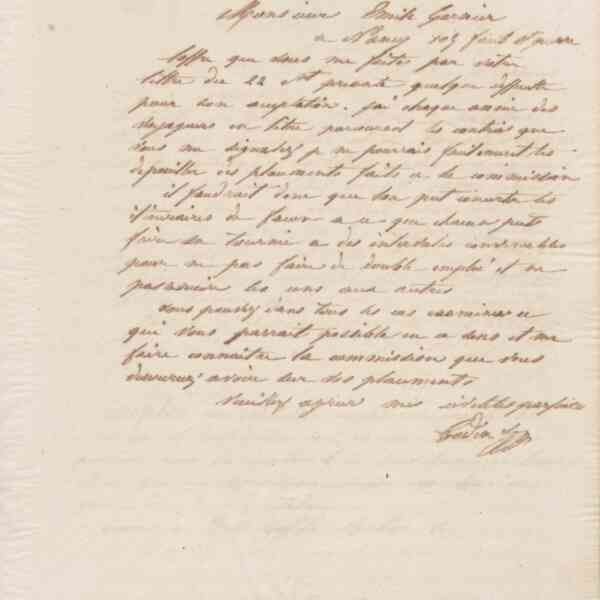 Monsieur Emile Garnier
a Nancy 105 faub St pierre
L'offre que vous me faites par votre
lettre du 22 Ct presente quelque difficulte
pour son acceptation. j'ai chaque annee des
voyageurs en titre parcourant les contrees que
vous me signalez je ne pourrais justement les
depouiller des placements faits a la commission
il faudrait donc que l'on put concerter les
itineraires de facon a ce que chacun puisse
faire sa tournee a des intervalles convenables
pour ne pas faire de double emploi et ne
pas nuire les uns aux autres
Vous pouvez dans tous les cas examiner ce
qui vous parrait possible en ce sens et me
faire connaitre la commission que vous
desireriez avoir sur vos placements
Veuillez agreer mes civilités parfaites